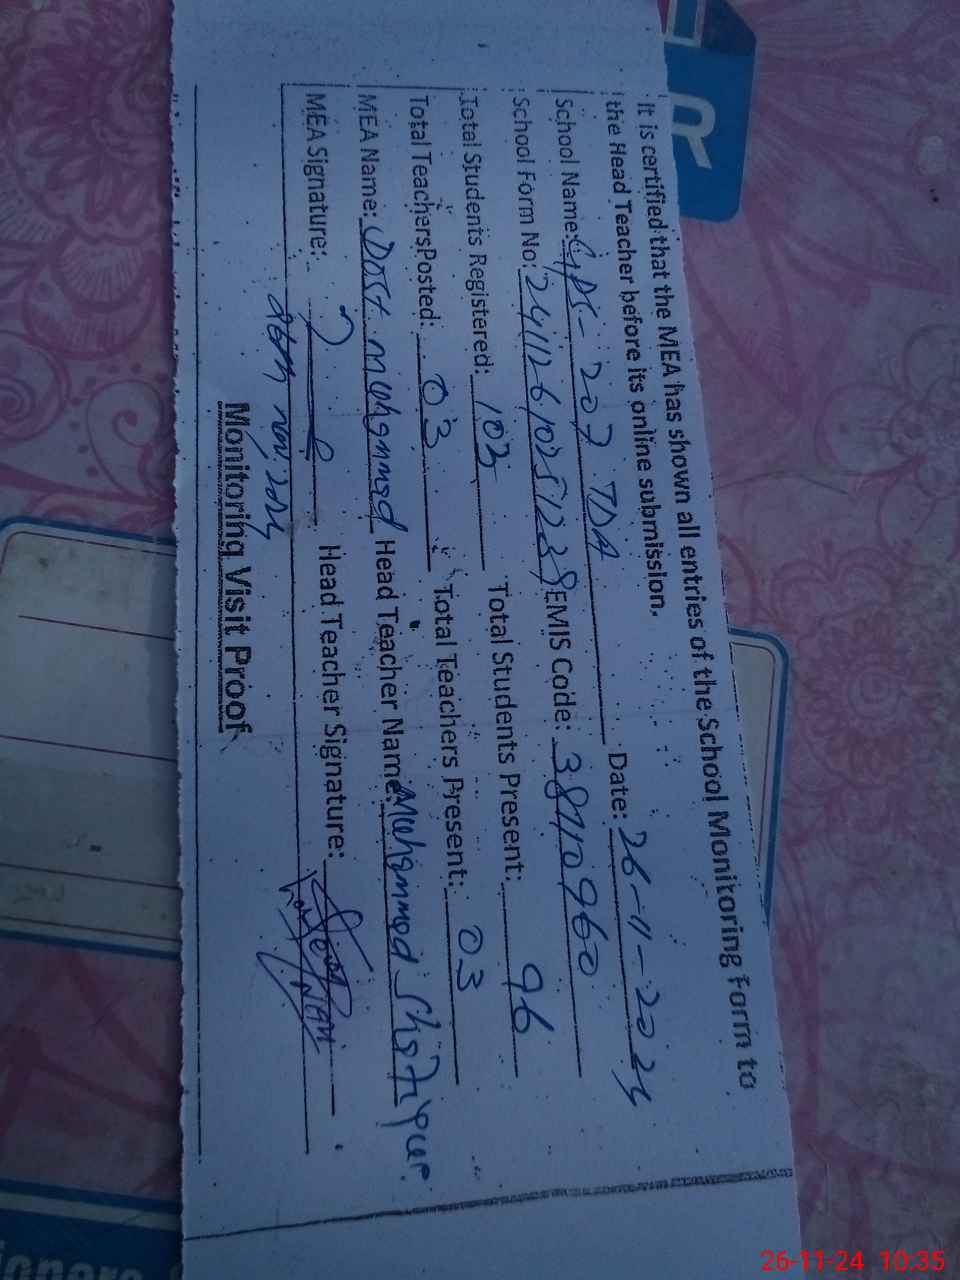 It is certified that the MEA has shown all entries of the School Monitoring Form to
the Head Teacher before its online submission.
School Name: GPS- 207 TDA Date: 26-11-2024
School Form No: 24112610251238 EMIS Code: 38410960
Total Students Registered: 103 Total Students Present: 96
Total TeachersPosted: 03 Total Teachers Present: 03
MEA Name: Dost Muhammad Head Teacher Name: Muhammad Shafique
MEA Signature: Head Teacher Signature:
26th nov 2024
Monitoring Visit Proof
R
26-11-24 10:35